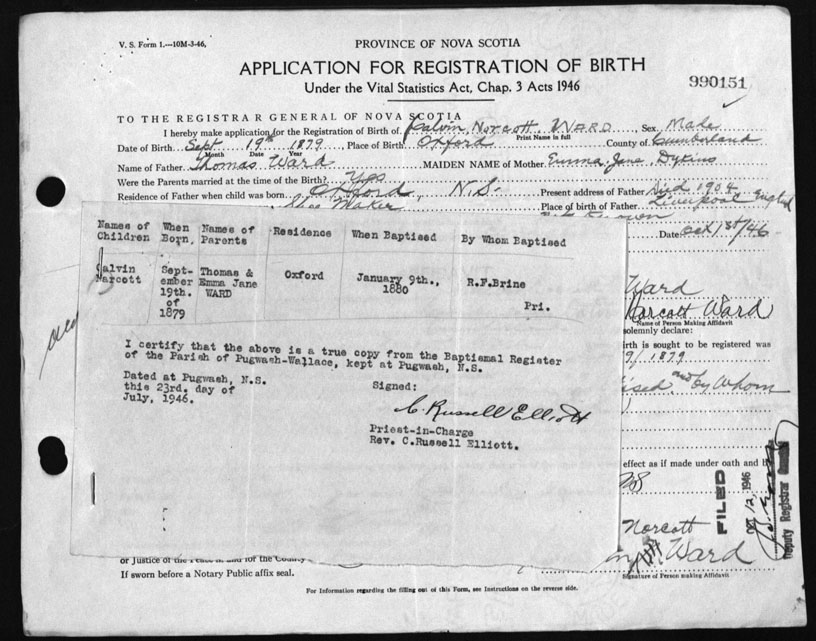 V. S. Form 1.—10M-3-46.
PROVINCE OF NOVA SCOTIA
APPLICATION FOR REGISTRATION OF BIRTH
Under the Vital Statistics Act, Chap. 3 Acts 1946
990151
TO THE REGISTRAR GENERAL OF NOVA SCOTIA
I hereby make application for the Registration of Birth of Calvin Norcott WARD Sex Male
Print Name in full
Date of Birth Sept 19th 1879 Place of Birth Oxford County of Cumberland
Month Date Year
Name of Father Thomas Ward MAIDEN NAME of Mother Emma Jane Dykins
Were the Parents married at the time of the Birth? Yes
Residence of Father when child was born Oxford N.S. Present address of Father Died 1904
Shoe Maker Place of birth of Father Liverpool England
Date Oct 1st/46
Names of Children
When Born,
Names of Parents
Residence
When Baptised
By Whom Baptised
Calvin Narcott
Sept-ember 19th. of 1879
Thomas & Emma Jane WARD
Oxford
January 9th., 1880
R.F.Brine
Pri.
I certify that the above is a true copy from the Baptismal Register
of the Parish of Pugwash-Wallace, kept at Pugwash, N.S.
Dated at Pugwash, N.S.
this 23rd. day of
July, 1946.
Signed:
C. Russell Elliott
Priest-in-Charge
Rev. C.Russell Elliott.
Ward
Norcott Ward
Name of Person Making Affidavit
solemnly declare:
irth is sought to be registered was
9/1879
ised and by Whom
effect as if made under oath and
FILED
OCT 12 1946
Deputy Registrar General
Norcott
Ward
Signature of Person making Affidavit
or Justice of the Peace in and for the County
If sworn before a Notary Public affix seal.
For Information regarding the filling out of this Form, see Instructions on the reverse side.